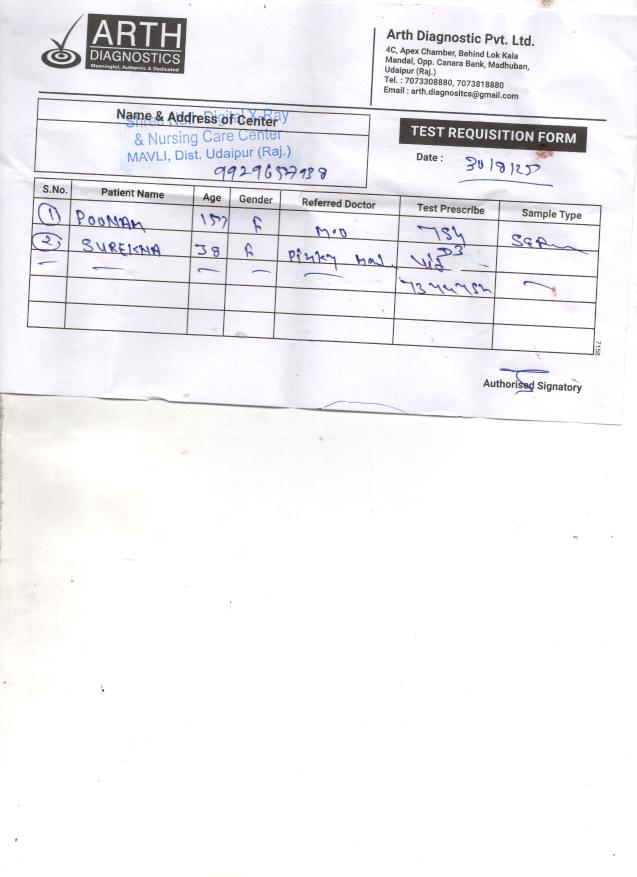 ARTH
DIAGNOSTICS
Meaningful, Authentic & Dedicated
Arth Diagnostic Pvt. Ltd.
4C, Apex Chamber, Behind Lok Kala
Mandal, Opp. Canara Bank, Madhuban,
Udaipur (Raj.)
Tel. : 7073308880, 7073818880
Email : arth.diagnositcs@gmail.com
Name & Address of Center
Digital X-Ray
& Nursing Care Center
MAVLI, Dist. Udaipur (Raj.)
TEST REQUISITION FORM
Date : 30/8/25
S.No. Patient Name Age Gender Referred Doctor Test Prescribe Sample Type
1 POONAM F M.D TSH
2 SUREKHA 38 F Pinky Vit D3
7158
Authorised Signatory